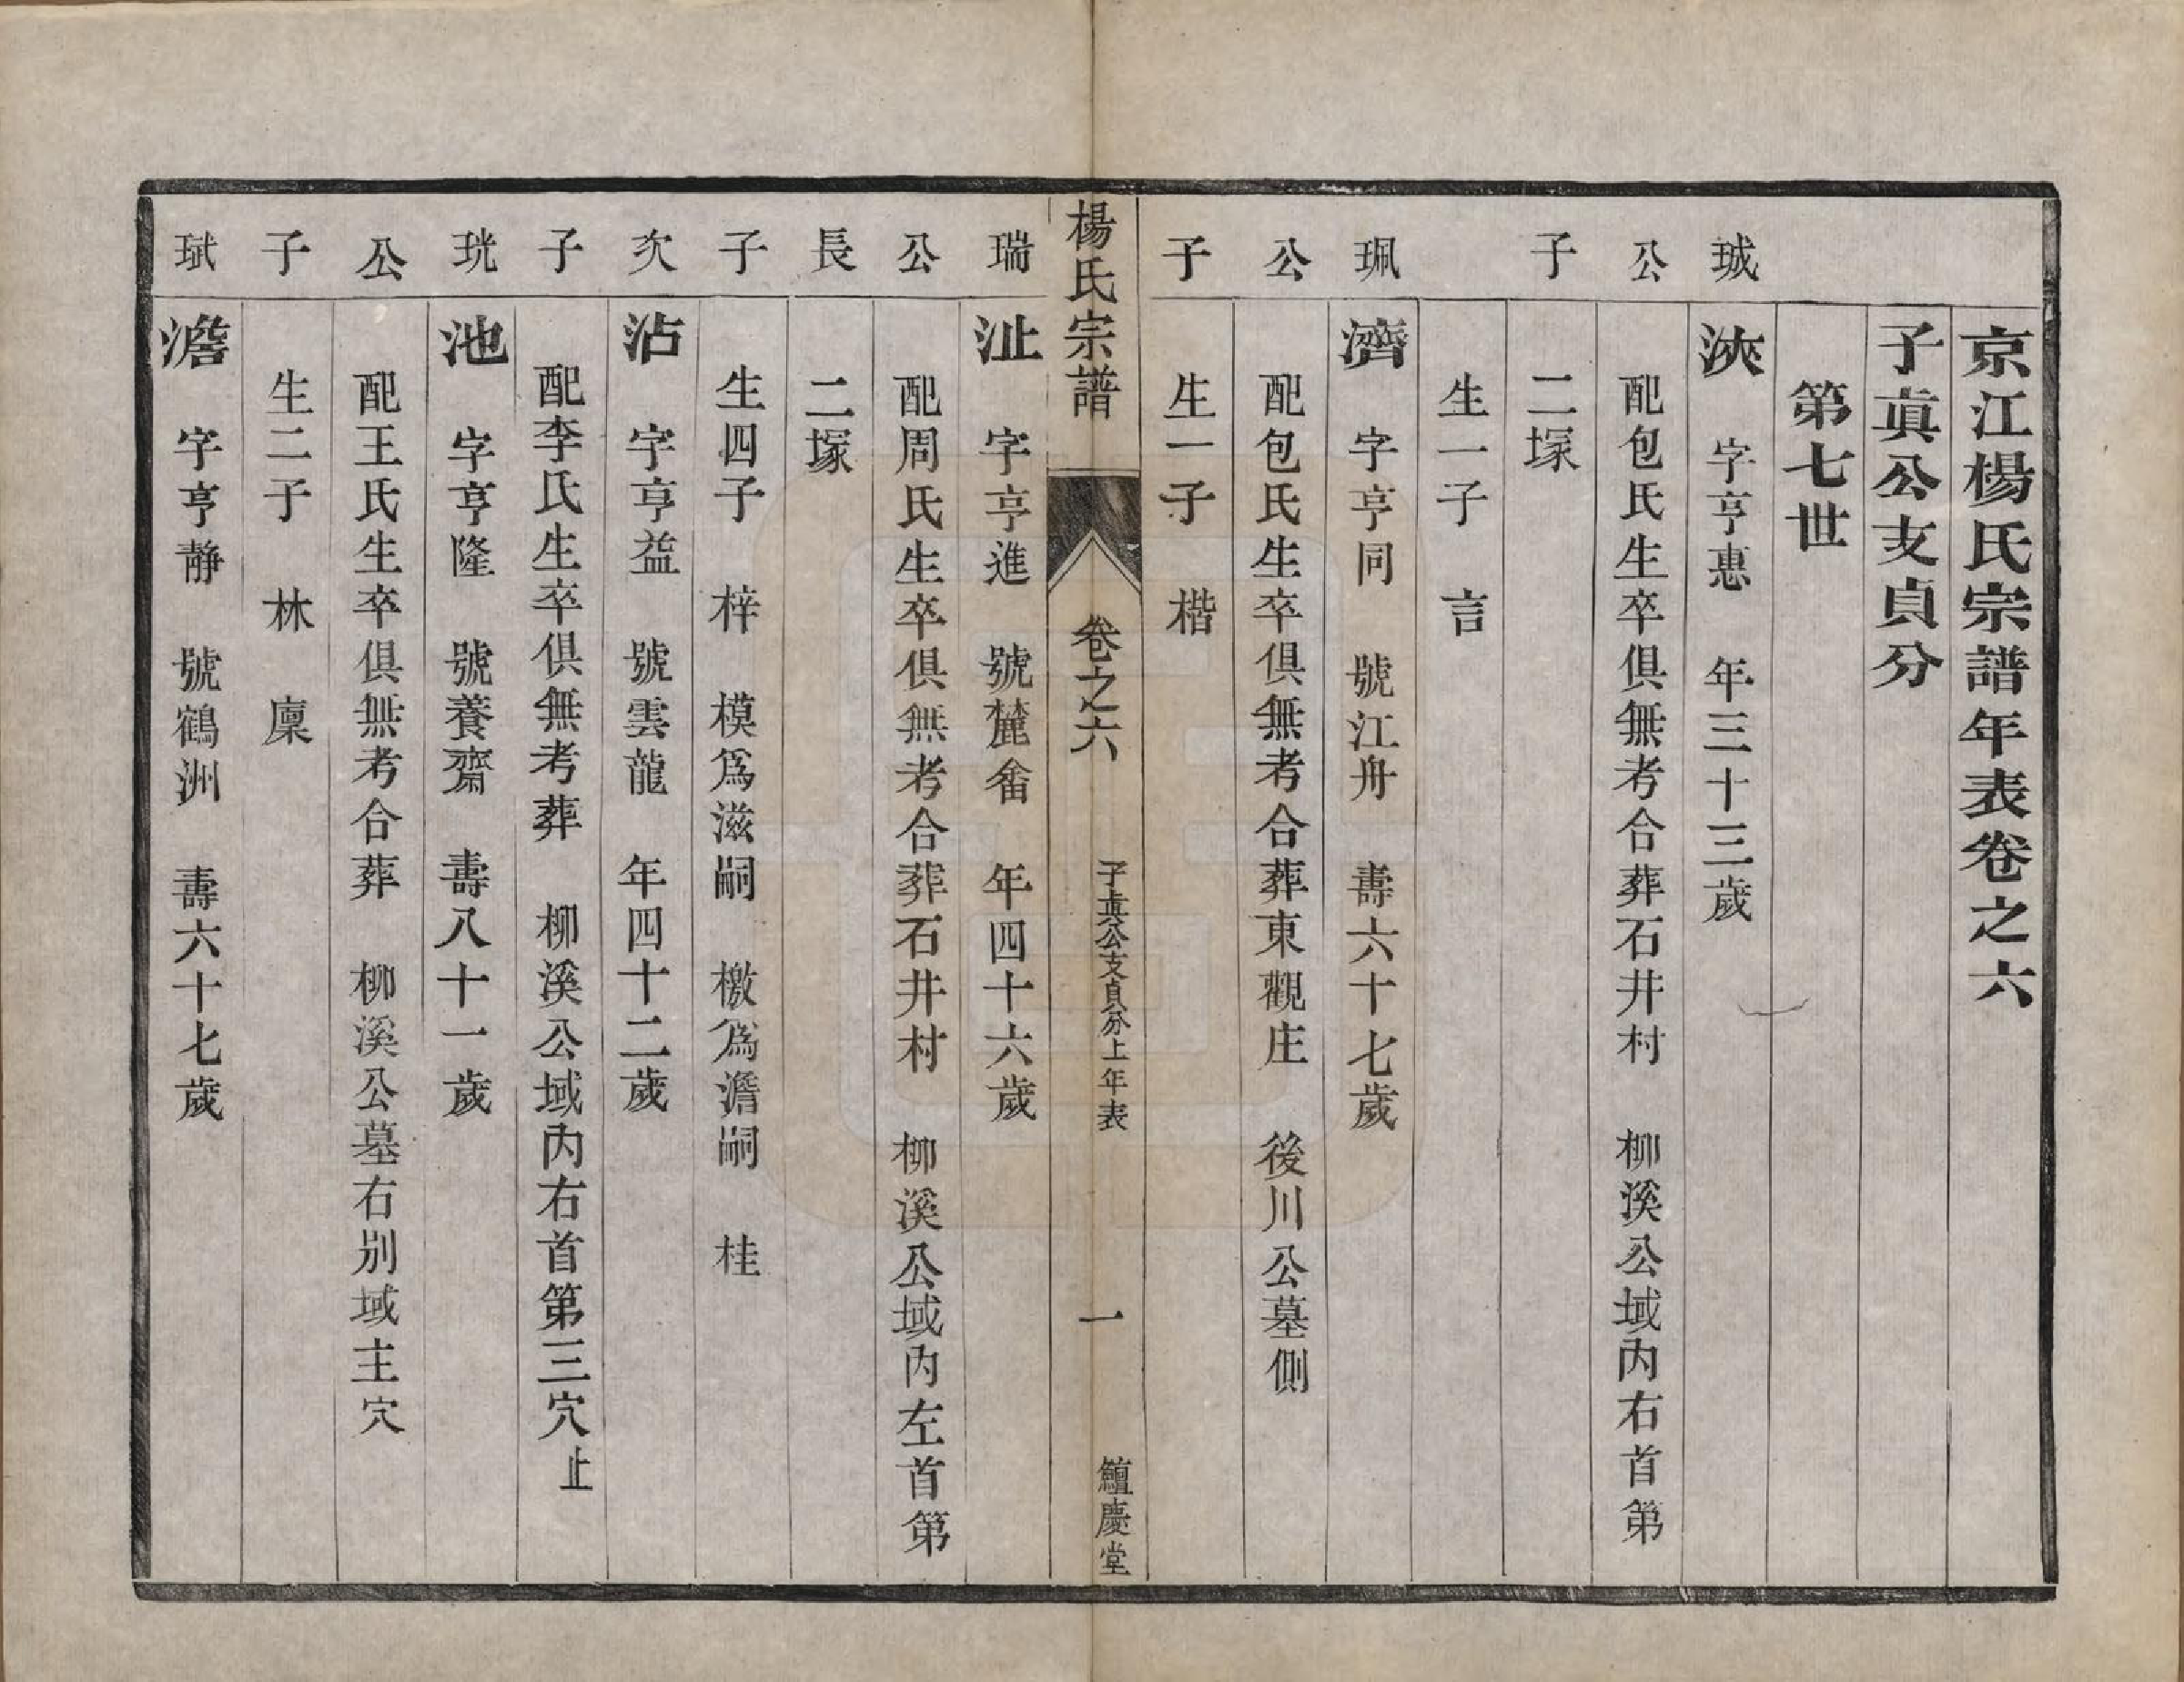 京江楊氏宗譜年表卷之六
子眞公支貞分
第七世
珹 浹 字亨惠 年三十三歲
公 配包氏生卒俱無考合葬石井村 柳溪公域內右首第
子 二塚
生一子 言
珮 濟 字亨同 號江舟 壽六十七歲
公 配包氏生卒俱無考合葬東觀庄 後川公墓側
子 生一子 楷
楊氏宗譜 卷之六 子眞公支貞分上年表 一 鱣慶堂
瑞 沚 字亨進 號麓畬 年四十六歲
公 配周氏生卒俱無考合葬石井村 柳溪公域內左首第
長 二塚
子 生四子 梓 模爲滋嗣 檄爲澹嗣 桂
次 沾 字亨益 號雲龍 年四十二歲
子 配李氏生卒俱無考葬 柳溪公域內右首第三穴止
珖 池 字亨隆 號養齋 壽八十一歲
公 配王氏生卒俱無考合葬 柳溪公墓右別域主穴
子 生二子 林 稟
珷 澹 字亨靜 號鶴洲 壽六十七歲